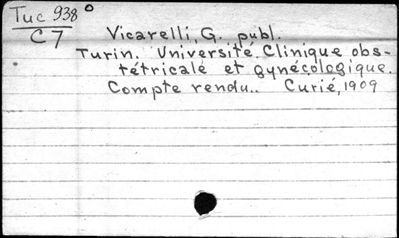 Tuc 938°
C7
Vicarelli, G. publ.
Turin. Université. Clinique obs-
tétricale et gynécologique.
Compte rendu.. Curié, 1909